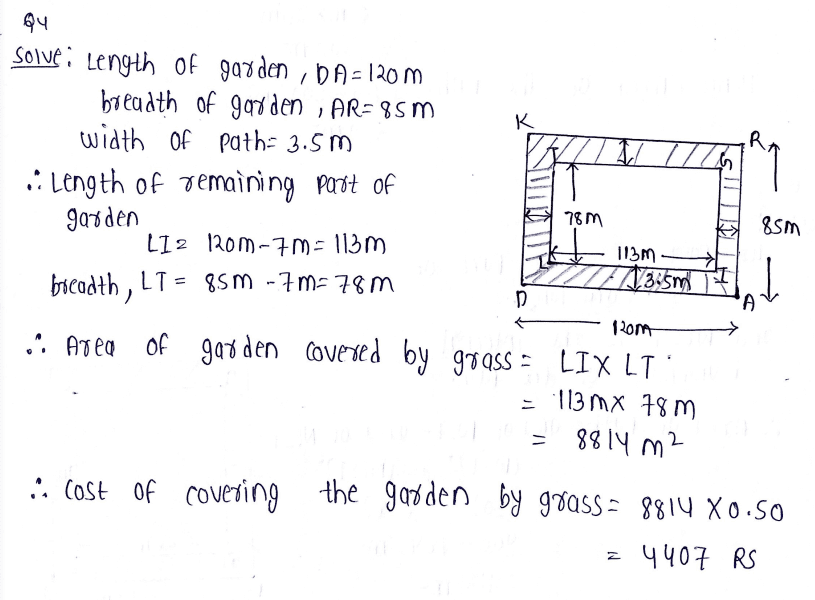 Q4
Solve: Length of garden, DA=120m
breadth of garden, AR=85m
width of path=3.5m
∴ Length of remaining part of
garden
LI= 120m-7m=113m
breadth, LT= 85m-7m=78m
K
R
T
S
78m
85m
113m
L
3.5m
I
D
A
120m
∴ Area of garden covered by grass= LI X LT
= 113m x 78m
= 8814 m2
∴ Cost of covering the garden by grass= 8814 X 0.50
= 4407 RS